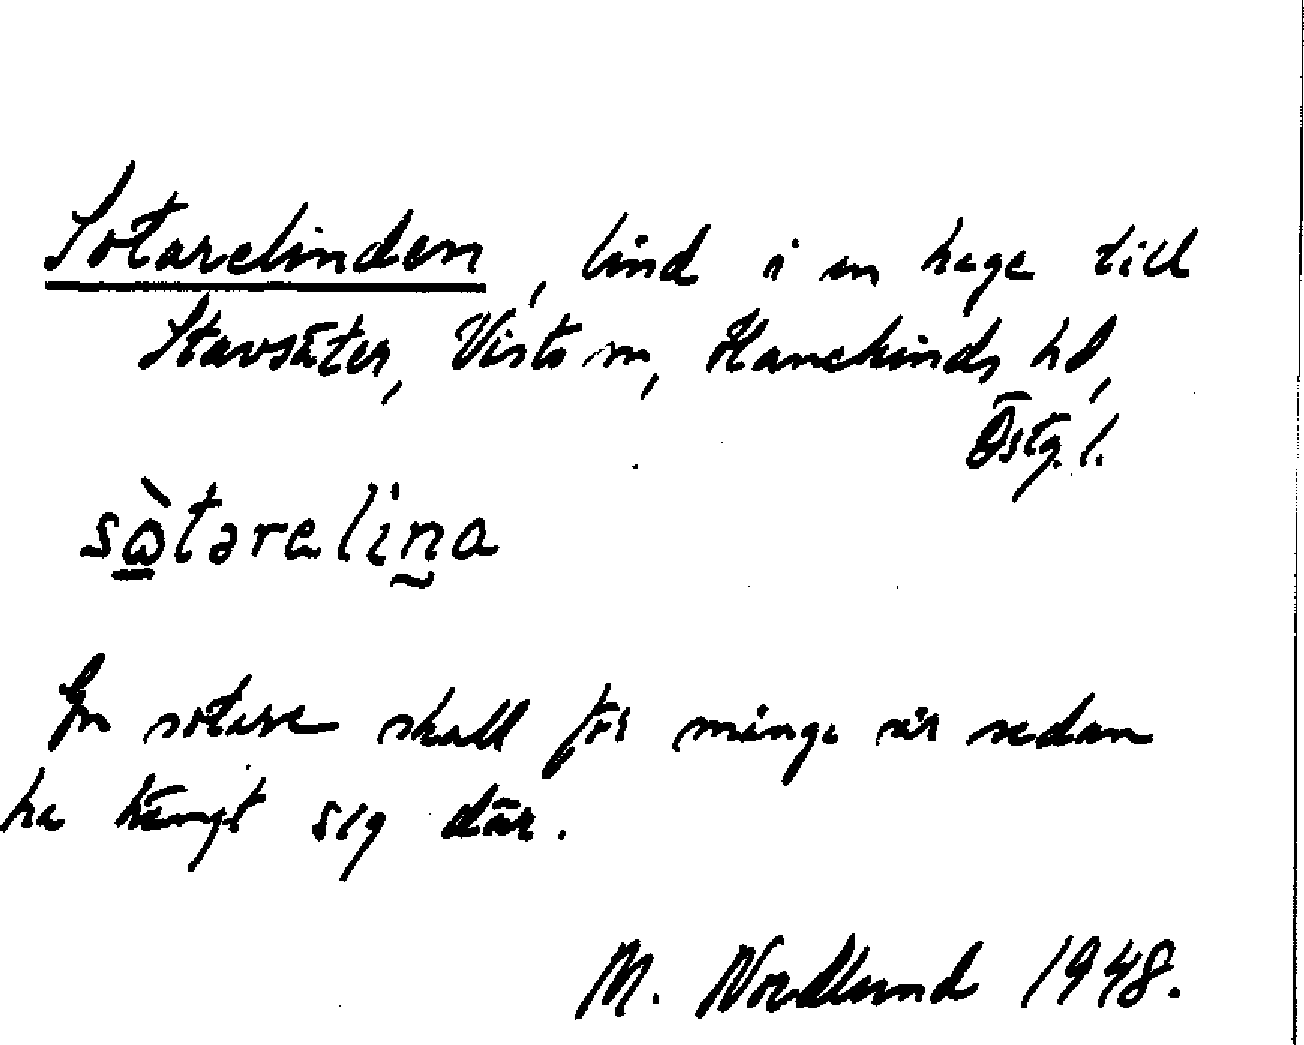 Sotarelinden, lind i en hage till
Stavsäter, Vists sn, Hanekinds hd,
Östg. l.
sò̱tarelina
En sotare skall för många år sedan
ha hängt sig där.
M. Nordlund 1948.